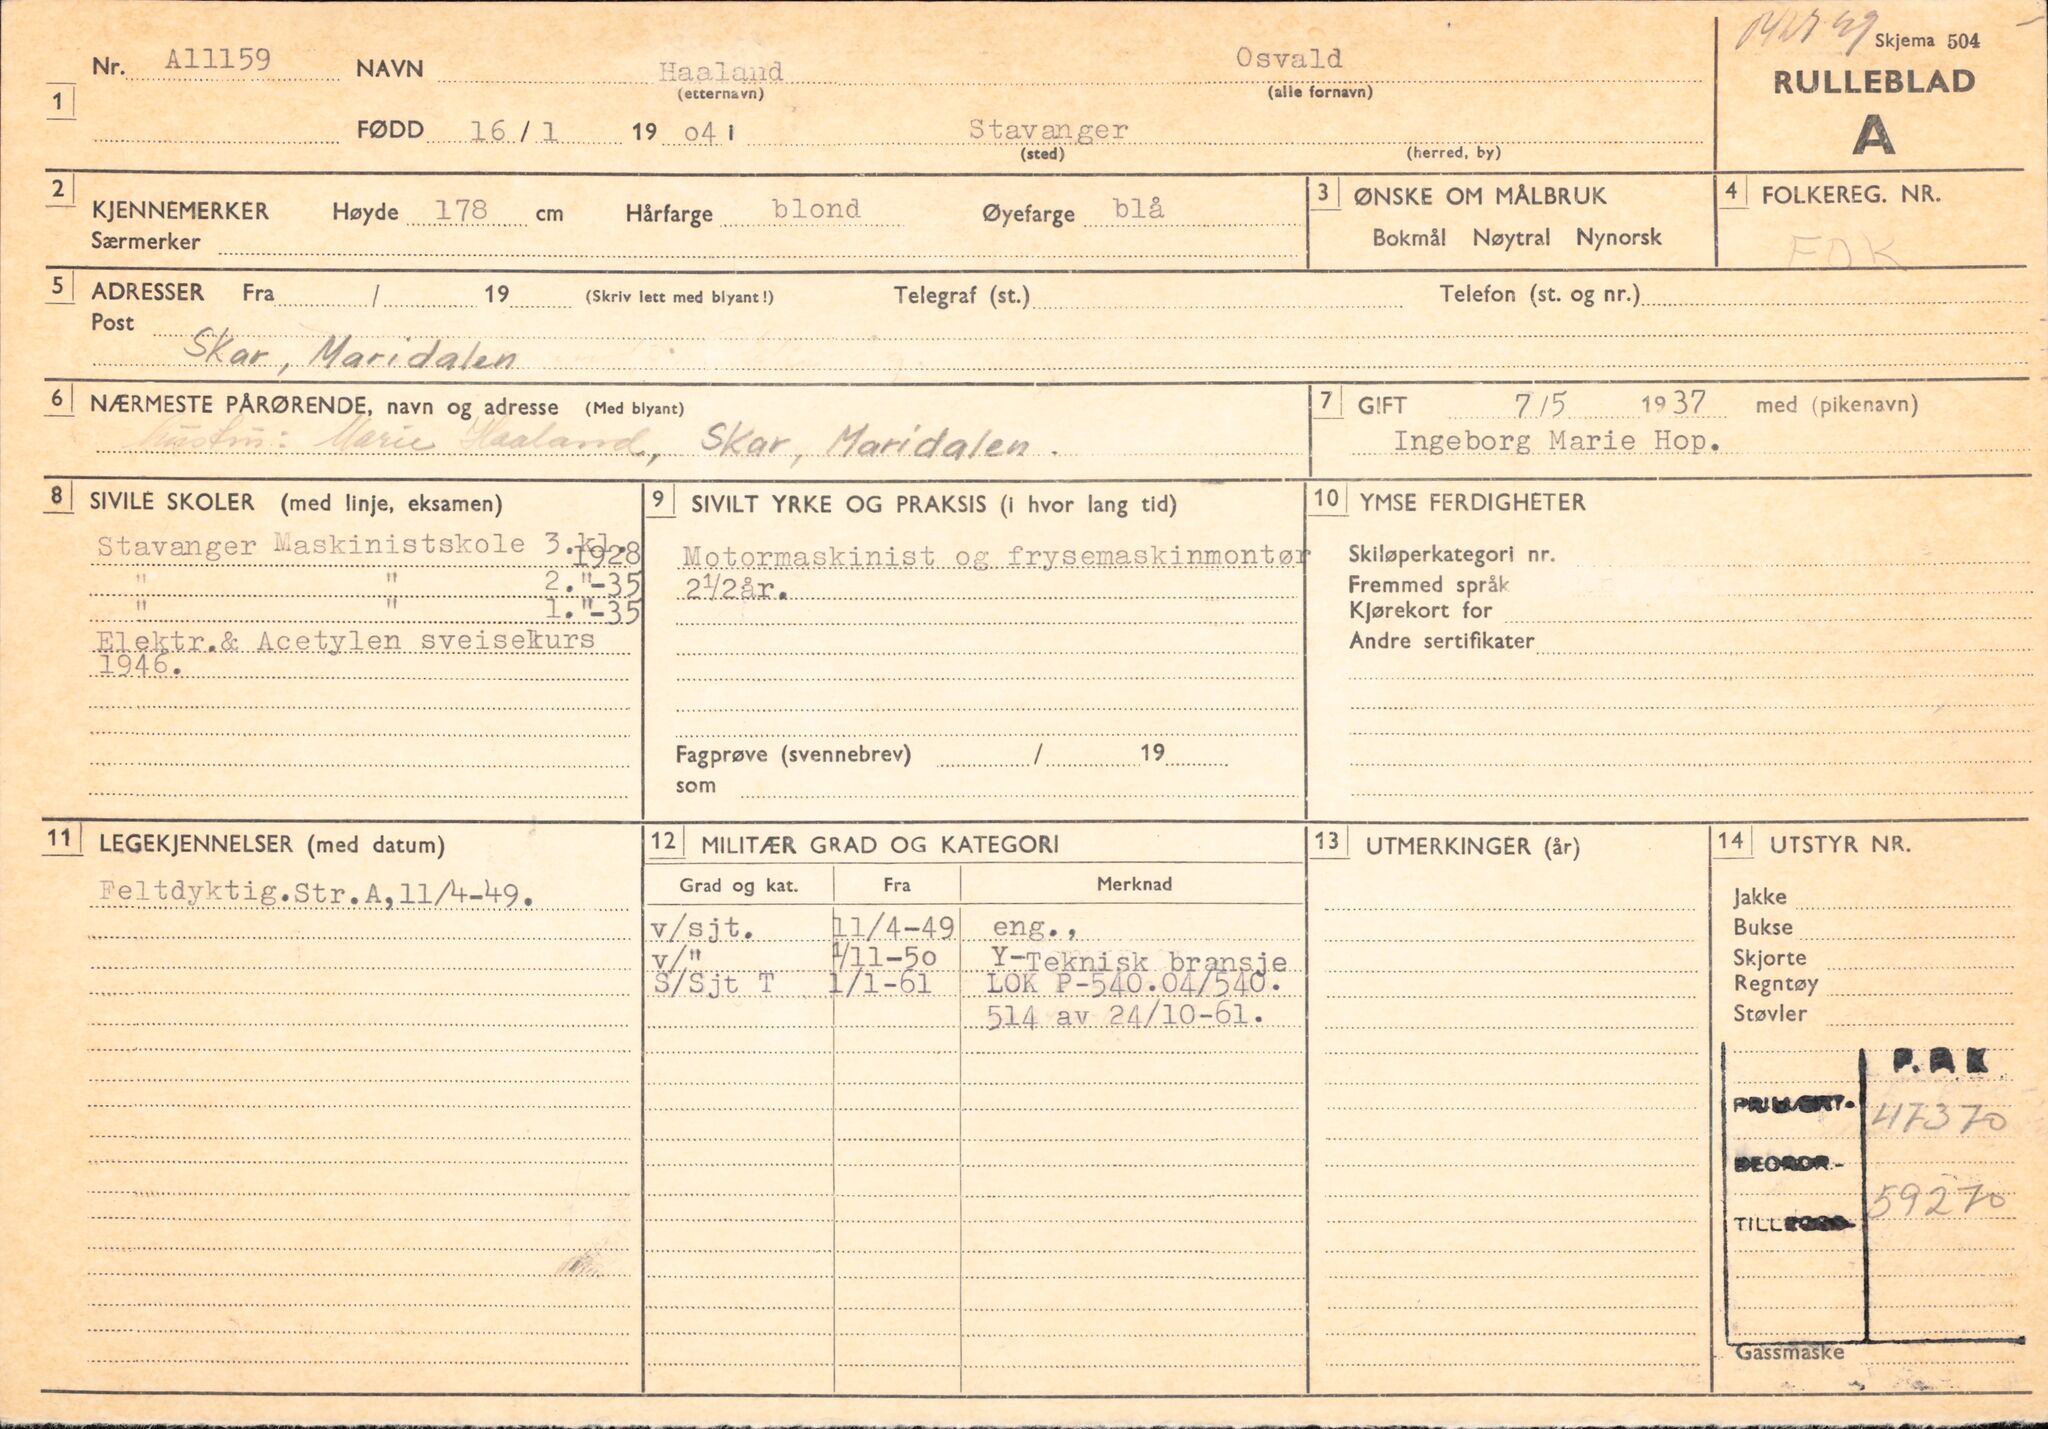 Skjema 504
RULLEBLAD
A
1
Nr. A11159 NAVN Haaland Osvald
(etternavn) (alle fornavn)
FØDD 16 / 1 19 04 i Stavanger
(sted) (herred, by)
2
KJENNEMERKER Høyde 178 cm Hårfarge blond Øyefarge blå
Særmerker
3 ØNSKE OM MÅLBRUK
Bokmål Nøytral Nynorsk
4 FOLKEREG. NR.
FOK
5 ADRESSER Fra / 19 (Skriv lett med blyant!) Telegraf (st.) Telefon (st. og nr.)
Post
Skar, Maridalen
6 NÆRMESTE PÅRØRENDE, navn og adresse (Med blyant)
Hustru: Marie Haaland, Skar, Maridalen.
7 GIFT 7/5 1937 med (pikenavn)
Ingeborg Marie Hop.
8 SIVILE SKOLER (med linje, eksamen)
Stavanger Maskinistskole 3.kl.
1928
" " 2."-35
" " 1."-35
Elektr.& Acetylen sveisekurs
1946.
9 SIVILT YRKE OG PRAKSIS (i hvor lang tid)
Motormaskinist og frysemaskinmontør
2½år.
Fagprøve (svennebrev) / 19
som
10 YMSE FERDIGHETER
Skiløperkategori nr.
Fremmed språk
Kjørekort for
Andre sertifikater
11 LEGEKJENNELSER (med datum)
Feltdyktig.Str.A,11/4-49.
12 MILITÆR GRAD OG KATEGORI
Grad og kat. Fra Merknad
v/sjt. 11/4-49 eng.,
v/" 1/11-50 Y-Teknisk bransje
S/Sjt T 1/1-61 LOK P-540.04/540.
514 av 24/10-61.
13 UTMERKINGER (år)
14 UTSTYR NR.
Jakke
Bukse
Skjorte
Regntøy
Støvler
P.A.K
47370
BEORDR-
59270
Gassmaske